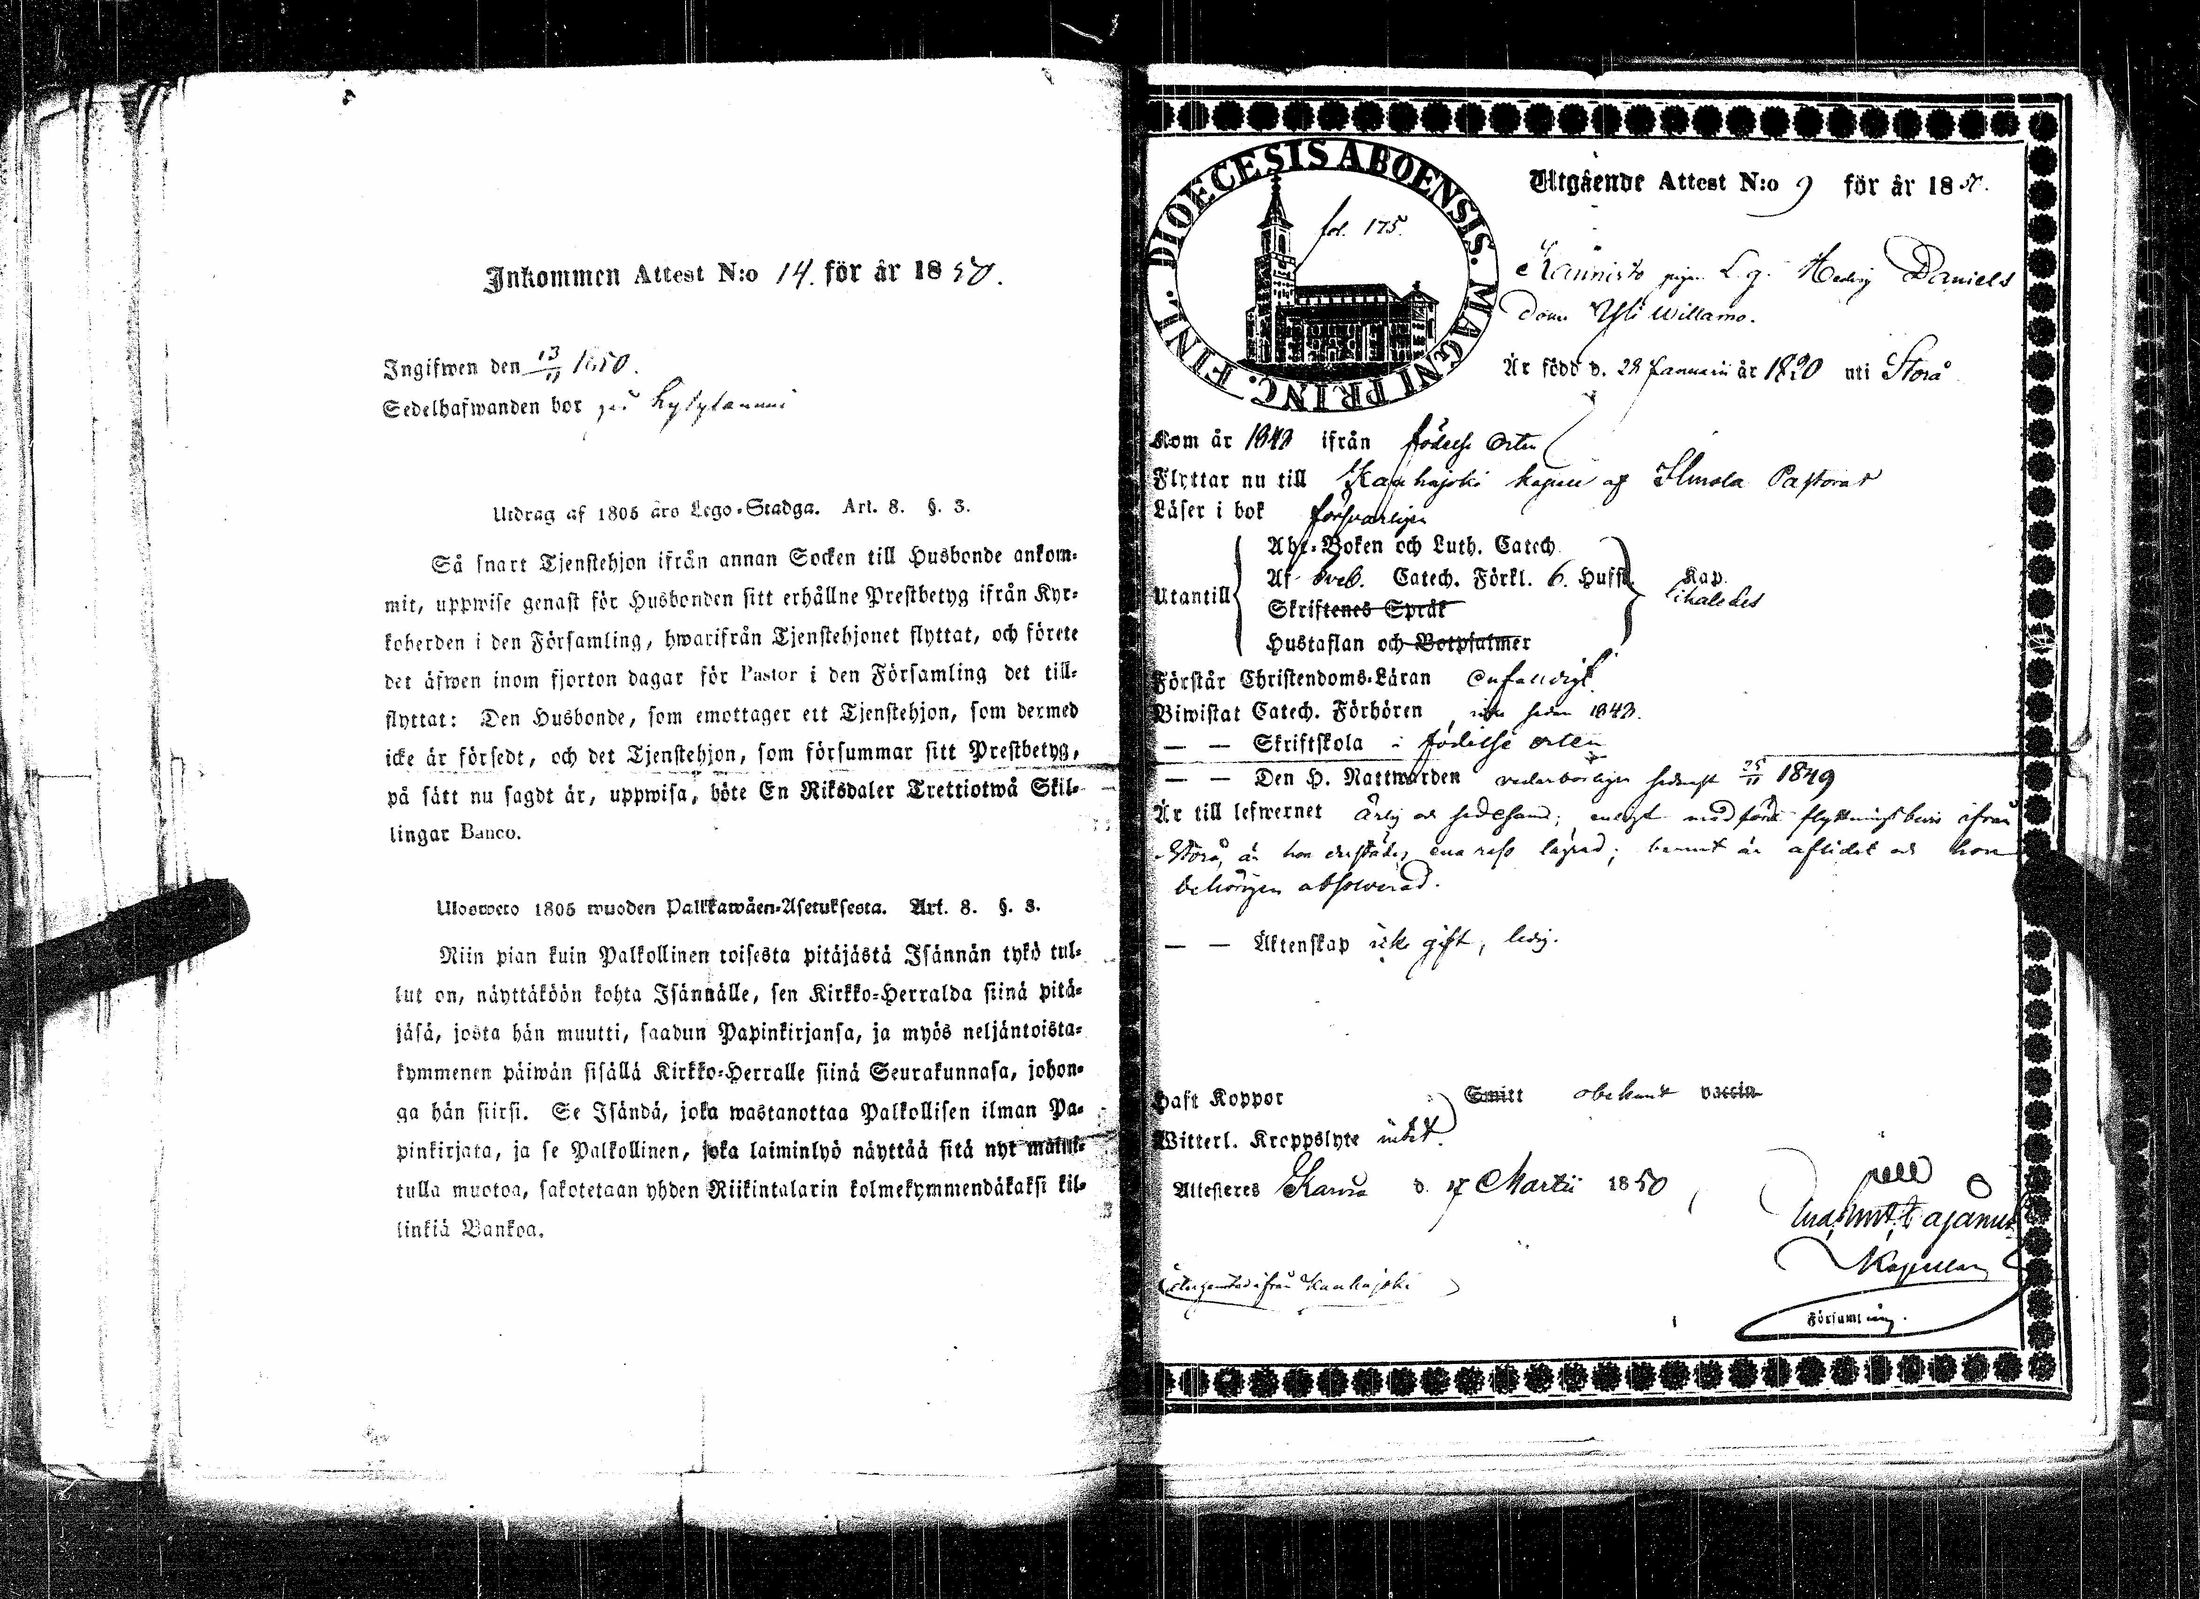 Inkommen Attest N:o 14. för år 1850.
Ingifwen den 13/11 1850.
Sedelhafwanden bor på
Utdrag af 1805 års Lego-Stadga. Art. 8. §. 3.
Så snart Tjenstehjon ifrån annan Socken till Husbonde ankom-
mit, uppwise genast för Husbonden sitt erhållne Prestbetyg ifrån Kyr-
koherden i den Församling, hwarifrån Tjenstehjonet flyttat, och förete
det äfwen inom fjorton dagar för Pastor i den Församling det till-
flyttat: Den Husbonde, som emottager ett Tjenstehjon, som dermed
icke är försedt, och det Tjenstehjon, som försummar sitt Prestbetyg,
på sätt nu sagdt är, uppwisa, böte En Riksdaler Trettiotwå Skil-
lingar Banco.
Ulosweto 1805 wuoden Palkkawäen-Asetuksesta. Art. 8. §. 3.
Niin pian kuin Palkollinen toisesta pitäjästä Isännän tykö tul-
lut on, näyttäköön kohta Isännälle, sen Kirkko-Herralda siinä pitä-
jäsä, josta hän muutti, saadun Papinkirjansa, ja myös neljäntoista-
kymmenen päiwän sisällä Kirkko-Herralle siinä Seurakunnasa, johon-
ga hän siirsi. Se Isändä, joka wastanottaa Palkollisen ilman Pa-
pinkirjata, ja se Palkollinen, joka laiminlyö näyttää sitä nyt mainit-
tulla muotoa, sakotetaan yhden Riikintalarin kolmekymmendäkaksi kil-
linkiä Bankoa.
DIOECESIS ABOENSIS. MAGNI PRINC. FINL.
fol. 175.
Utgående Attest N:o 9 för år 1850.
Kaunisto pigan L. g. Hedvig Daniels
Dotter Yli Willamo.
Är född d. 28 Januarii år 1820 uti Storå
Kom år 1843 ifrån födelse orten
Flyttar nu till Kauhajoki kapell af Ilmola Pastorat
Läser i bok försvarligen
Utantill Abc-Boken och Luth. Catech.
Af Sveb. Catech. Förkl. 6. Hufst. Kap.
Skriftenes Språk likaledes
Hustaflan och Botpsalmer
Förstår Christendoms-Läran enfaldigt.
Biwistat Catech. Förhören, icke sedan 1843.
— — Skriftskola i födelse orten
— — Den H. Nattwarden vederbörligen senast 25/11 1849
Är till lefwernet ärlig och sedesam; enligt medförd flyttningsbevis ifrån
Storå, är hon derstädes ena resa lägrad; barnet är aflidet och hon
behörigen absolverad.
— — Äktenskap icke gift, ledig.
Haft Koppor Smitt obekant vaccin
Witterl. Kroppslyte intet.
Attesteres Karvia d. 17 Martii 1850
Kapellan
Församling.
ifrån Kauhajoki